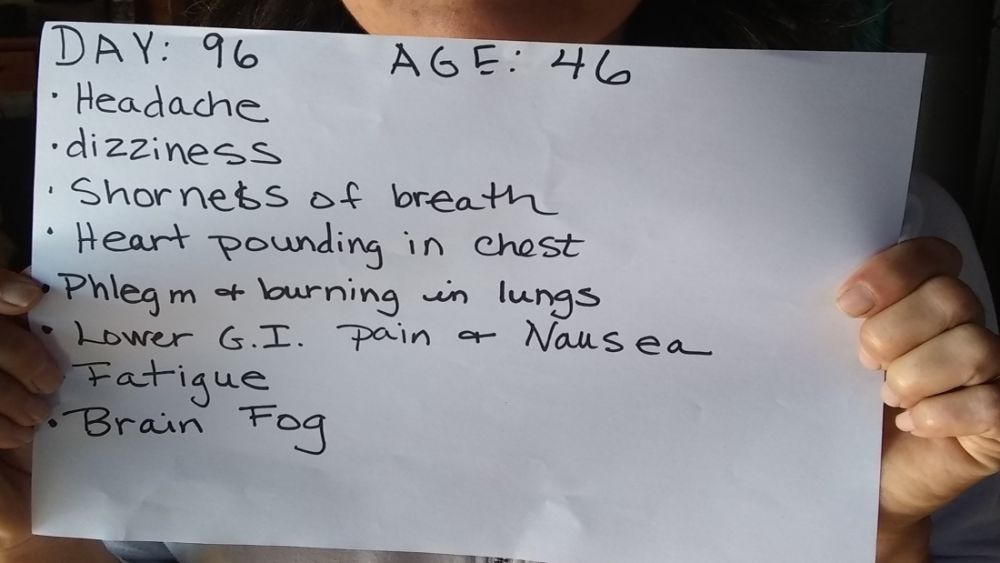 DAY: 96 AGE: 46
· Headache
· dizziness
· Shorness of breath
· Heart pounding in chest
· Phlegm & burning in lungs
· Lower G.I. pain & Nausea
· Fatigue
· Brain Fog